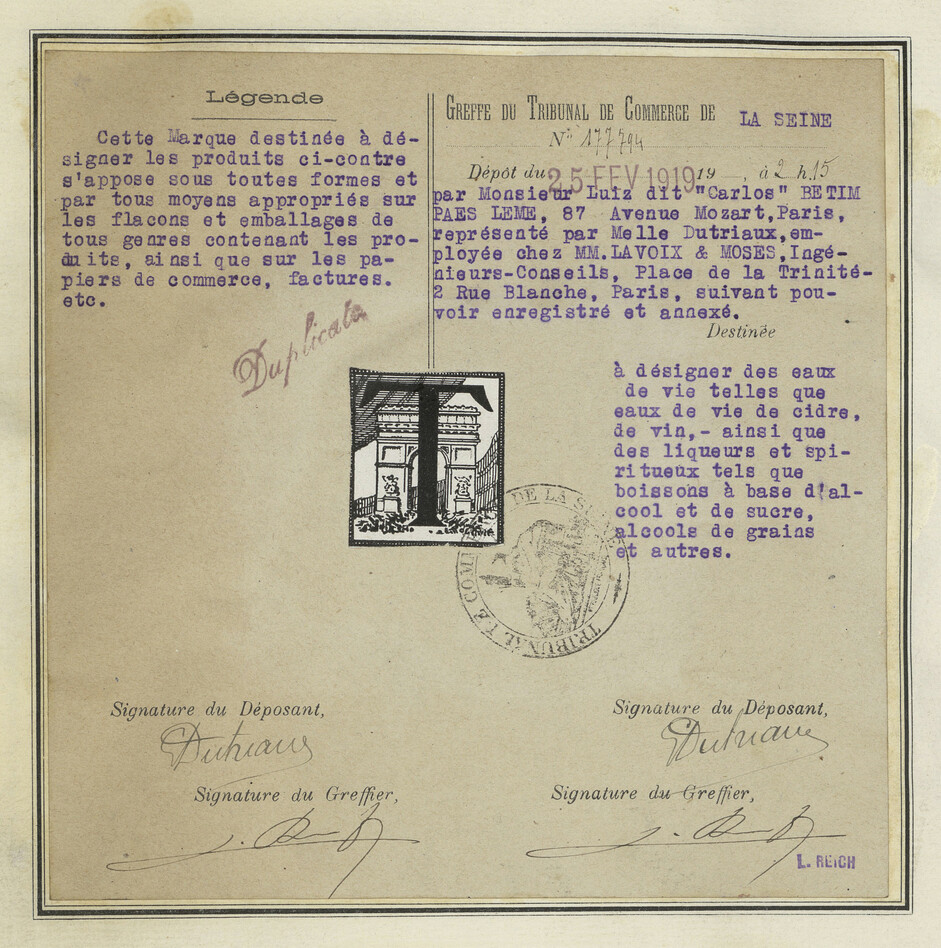 Légende
Cette Marque destinée à dé-
signer les produits ci-contre
s'appose sous toutes formes et
par tous moyens appropriés sur
les flacons et emballages de
tous genres contenant les pro-
duits, ainsi que sur les pa-
piers de commerce, factures.
etc.
Duplicata
GREFFE DU TRIBUNAL DE COMMERCE DE LA SEINE
N° 177794
Dépôt du 25 FEV 1919 19 , à 2 h. 15
par Monsieur Luiz dit "Carlos" BETIM
PAES LEME, 87 Avenue Mozart,Paris,
représenté par Melle Dutriaux,em-
ployée chez MM.LAVOIX & MOSES,Ingé-
nieurs-Conseils, Place de la Trinité-
2 Rue Blanche, Paris, suivant pou-
voir enregistré et annexé.
Destinée
à désigner des eaux
de vie telles que
eaux de vie de cidre,
de vin,- ainsi que
des liqueurs et spi-
ritueux tels que
boissons à base d'al-
cool et de sucre,
alcools de grains
et autres.
T
TRIBUNAL DE COMM DE LA S
Signature du Déposant,
Dutriaux
Signature du Greffier,
Signature du Déposant,
Dutriaux
Signature du Greffier,
L. REICH